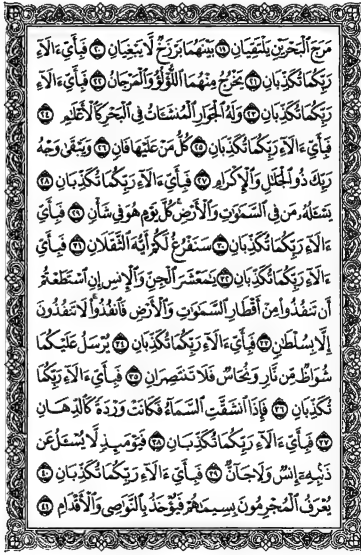 مَرَجَ الْبَحْرَيْنِ يَلْتَقِيَانِ ١٩ بَيْنَهُمَا بَرْزَخٌ لَا يَبْغِيَانِ ٢٠ فَبِأَيِّ آلَاءِ
رَبِّكُمَا تُكَذِّبَانِ ٢١ يَخْرُجُ مِنْهُمَا اللُّؤْلُؤُ وَالْمَرْجَانُ ٢٢ فَبِأَيِّ آلَاءِ
رَبِّكُمَا تُكَذِّبَانِ ٢٣ وَلَهُ الْجَوَارِ الْمُنشَآتُ فِي الْبَحْرِ كَالْأَعْلَامِ ٢٤
فَبِأَيِّ آلَاءِ رَبِّكُمَا تُكَذِّبَانِ ٢٥ كُلُّ مَنْ عَلَيْهَا فَانٍ ٢٦ وَيَبْقَىٰ وَجْهُ
رَبِّكَ ذُو الْجَلَالِ وَالْإِكْرَامِ ٢٧ فَبِأَيِّ آلَاءِ رَبِّكُمَا تُكَذِّبَانِ ٢٨
يَسْأَلُهُ مَن فِي السَّمَاوَاتِ وَالْأَرْضِ كُلَّ يَوْمٍ هُوَ فِي شَأْنٍ ٢٩ فَبِأَيِّ
آلَاءِ رَبِّكُمَا تُكَذِّبَانِ ٣٠ سَنَفْرُغُ لَكُمْ أَيُّهَ الثَّقَلَانِ ٣١ فَبِأَيِّ
آلَاءِ رَبِّكُمَا تُكَذِّبَانِ ٣٢ يَا مَعْشَرَ الْجِنِّ وَالْإِنسِ إِنِ اسْتَطَعْتُمْ
أَن تَنفُذُوا مِنْ أَقْطَارِ السَّمَاوَاتِ وَالْأَرْضِ فَانفُذُوا لَا تَنفُذُونَ
إِلَّا بِسُلْطَانٍ ٣٣ فَبِأَيِّ آلَاءِ رَبِّكُمَا تُكَذِّبَانِ ٣٤ يُرْسَلُ عَلَيْكُمَا
شُوَاظٌ مِّن نَّارٍ وَنُحَاسٌ فَلَا تَنتَصِرَانِ ٣٥ فَبِأَيِّ آلَاءِ رَبِّكُمَا
تُكَذِّبَانِ ٣٦ فَإِذَا انشَقَّتِ السَّمَاءُ فَكَانَتْ وَرْدَةً كَالدِّهَانِ
٣٧ فَبِأَيِّ آلَاءِ رَبِّكُمَا تُكَذِّبَانِ ٣٨ فَيَوْمَئِذٍ لَّا يُسْأَلُ عَن
ذَنبِهِ إِنسٌ وَلَا جَانٌّ ٣٩ فَبِأَيِّ آلَاءِ رَبِّكُمَا تُكَذِّبَانِ ٤٠
يُعْرَفُ الْمُجْرِمُونَ بِسِيمَاهُمْ فَيُؤْخَذُ بِالنَّوَاصِي وَالْأَقْدَامِ ٤١